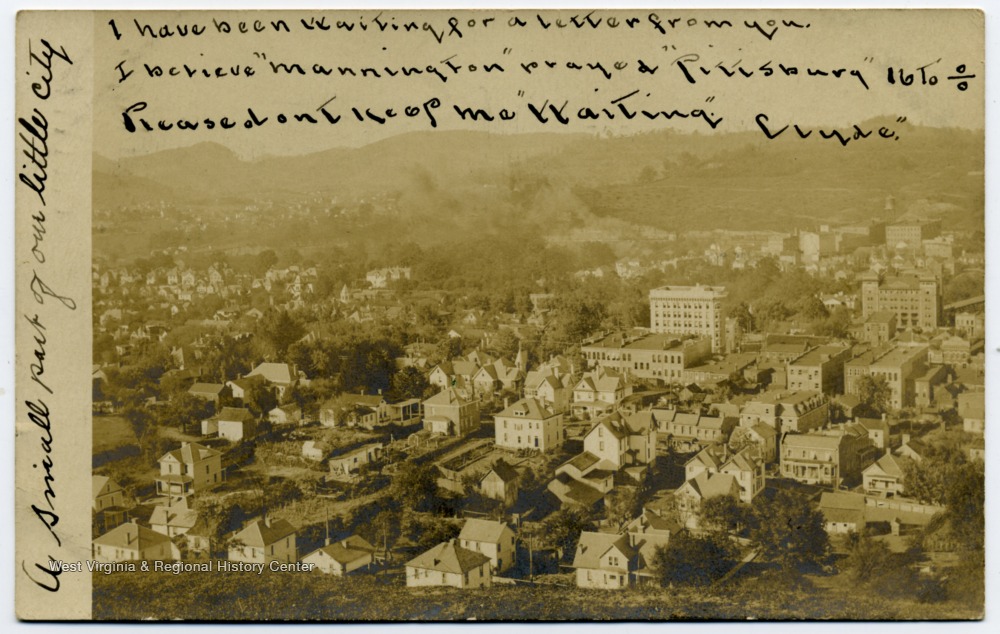 I have been waiting for a letter from you.
I believe "Mannington" prayed "Pittsburg" 16 to 0/0
Please don't keep me "Waiting" Clyde."
A small part of our little city
West Virginia & Regional History Center